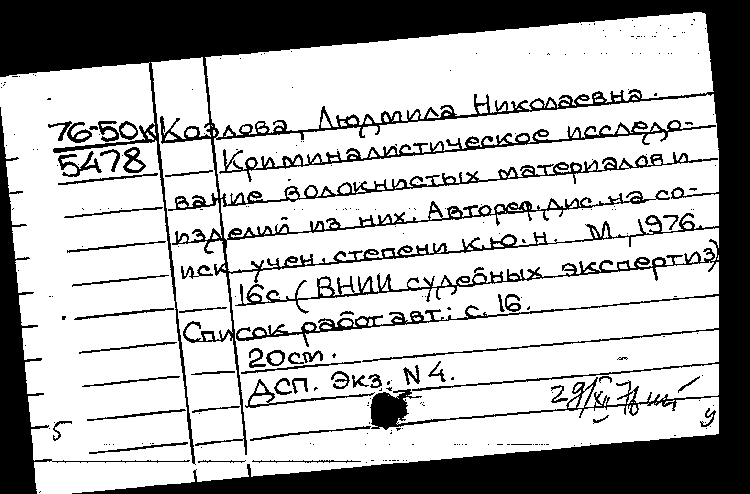 76-50к Козлова, Людмила Николаевна.
5478 Криминалистическое исследо-
вание волокнистых материалов и
изделий из них. Автореф. дис. на со-
иск. учен. степени к.ю.н. М., 1976.
16с. (ВНИИ судебных экспертиз)
Список работ авт.: с. 16.
20см.
ДСП. Экз. N 4.
29/XII 76
5
у